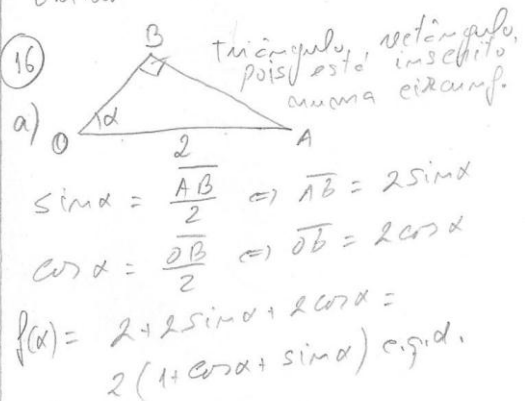 16
triângulo, retângulo,
pois está inscrito
numa circunf.
a)
B
α
O
A
2
sin α = \overline{AB}/2 ⇔ \overline{AB} = 2 sin α
cos α = \overline{OB}/2 ⇔ \overline{OB} = 2 cos α
f(α) = 2 + 2 sin α + 2 cos α =
2 (1 + cos α + sin α) c.q.d.